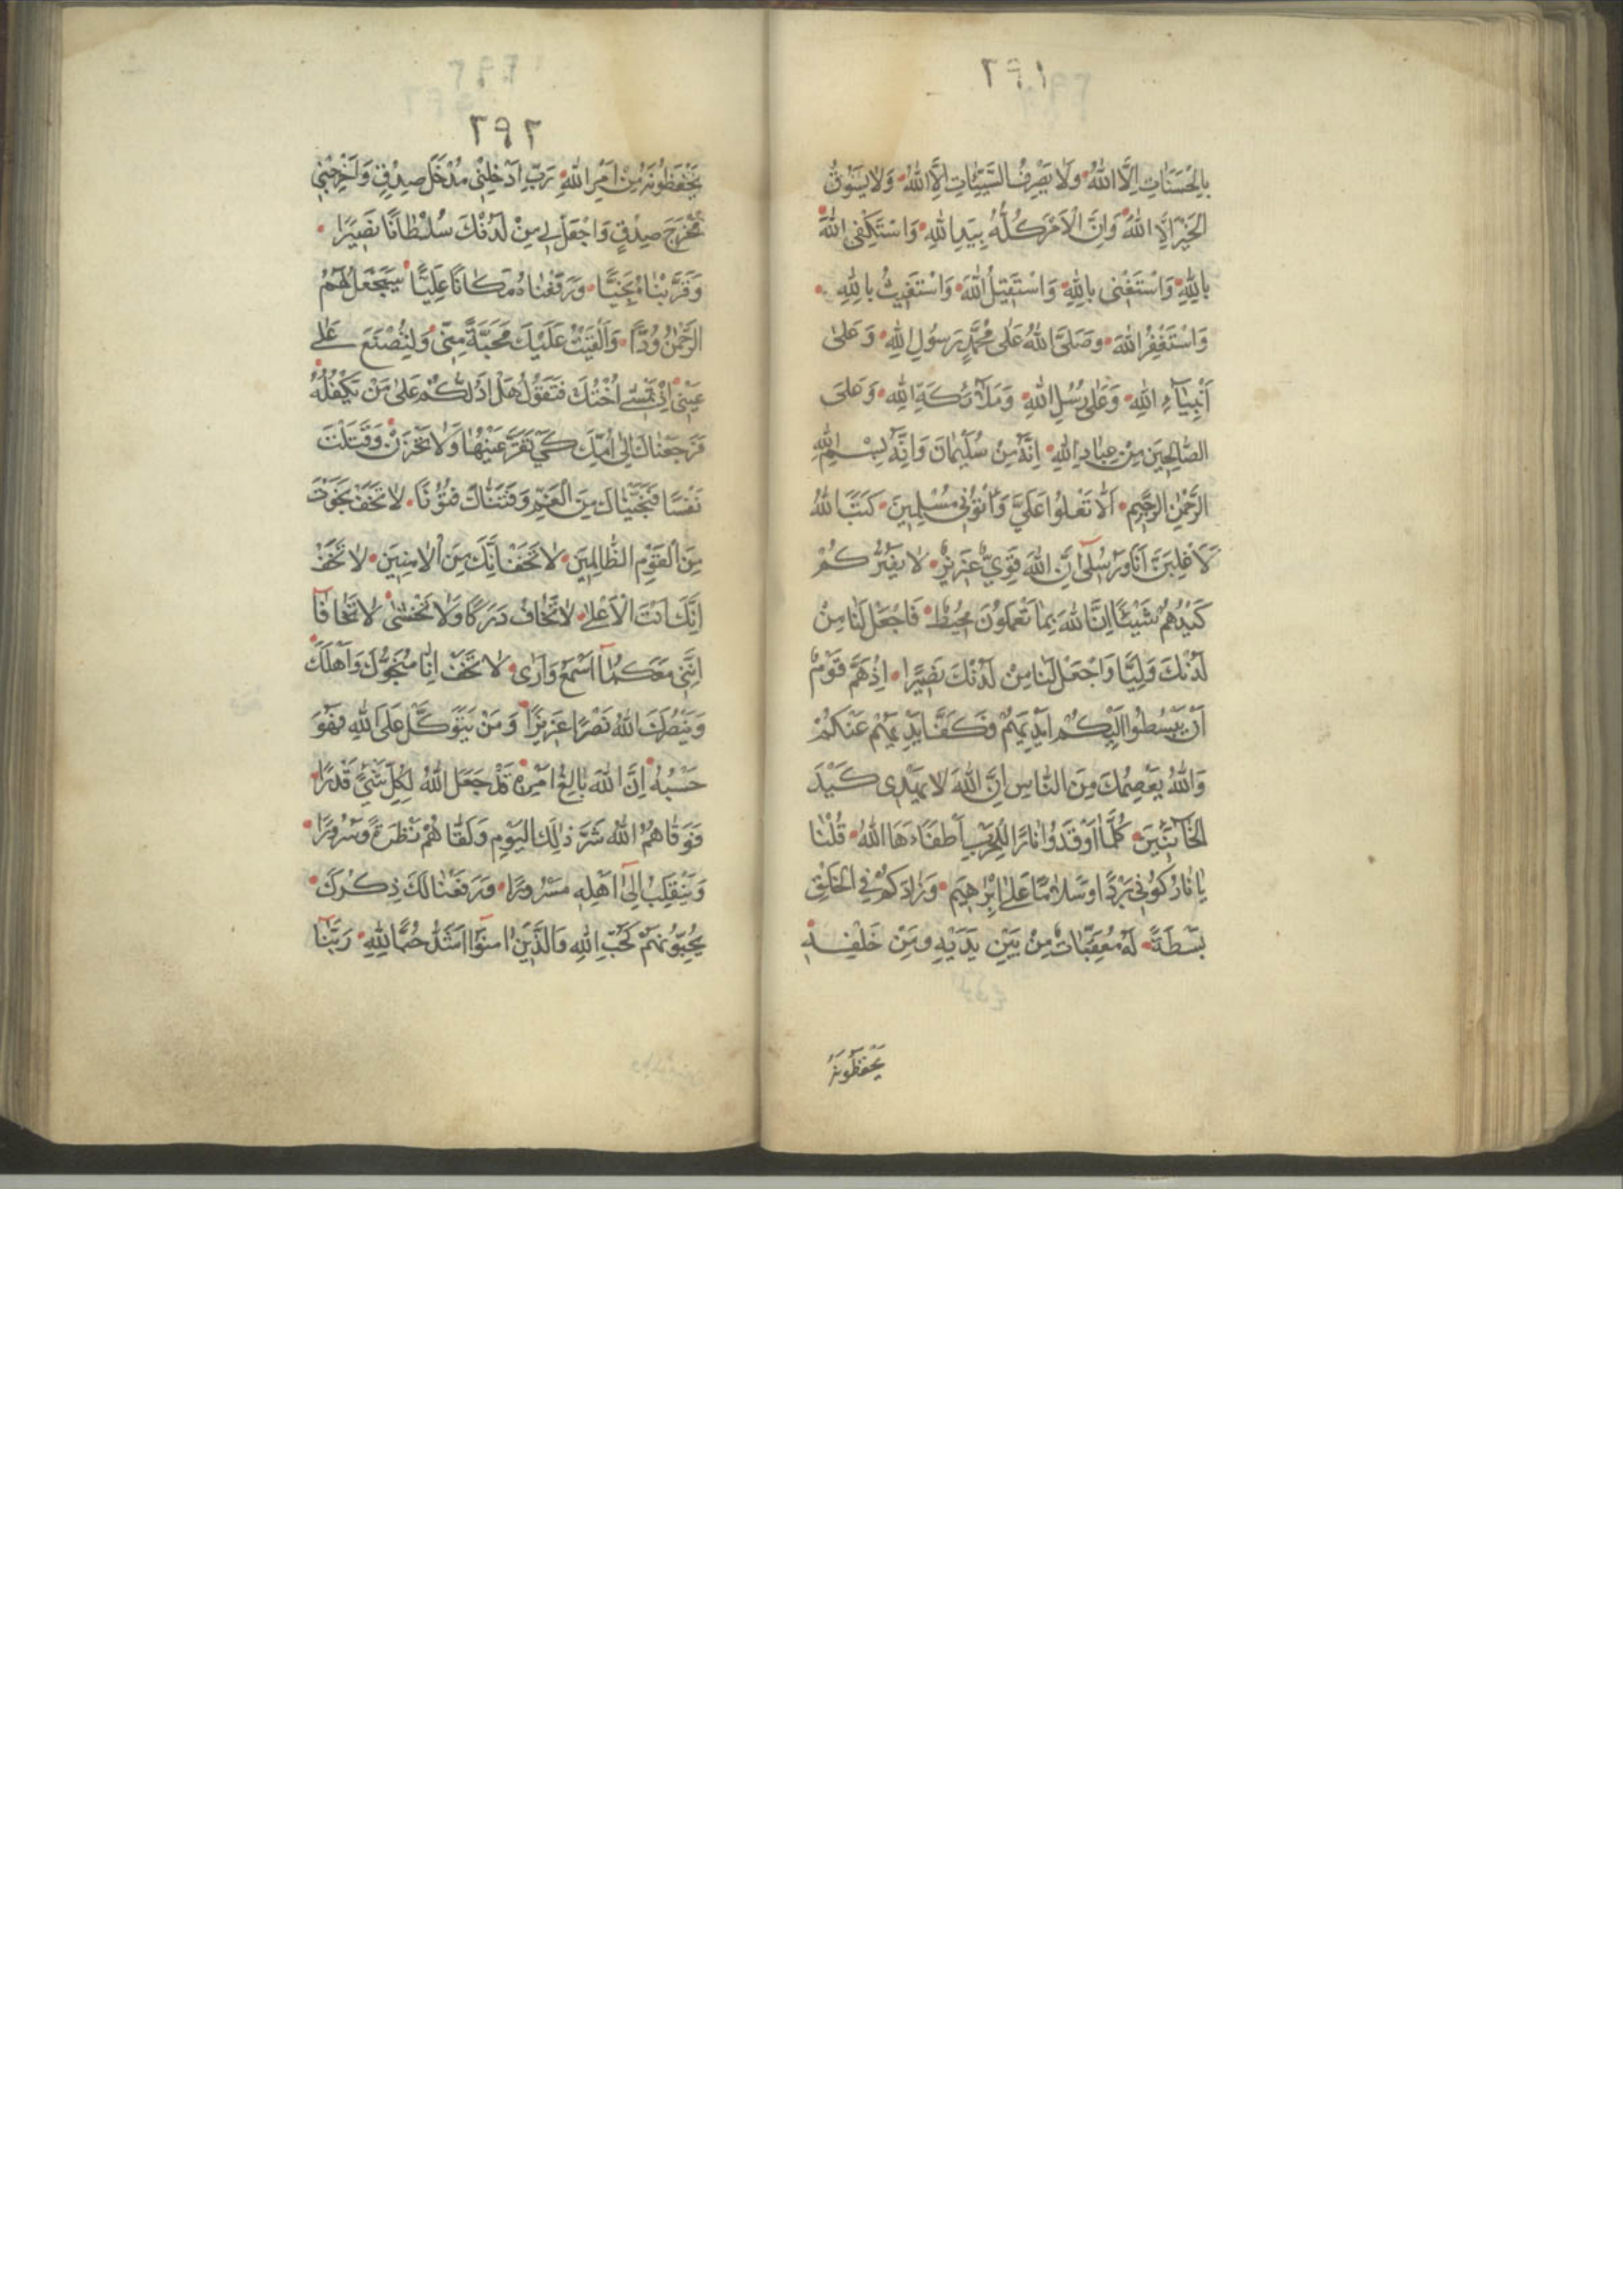 ٢٩١
بِالْحَسَنَاتِ اِلَّا اللهُ وَلَا يَصْرِفُ السَّيِّئَاتِ اِلَّا اللهُ وَلَا يَسُوقُ
الْخَيْرَ اِلَّا اللهُ وَاِنَّ الْاَمْرَ كُلَّهُ بِيَدِ اللهِ وَاسْتَكْفِى اللهَ
بِاللهِ وَاسْتَغْنِى بِاللهِ وَاسْتَقِيلُ اللهَ وَاسْتَغِيثُ بِاللهِ
وَاسْتَغْفِرُ اللهَ وَصَلَّى اللهُ عَلٰى مُحَمَّدٍ رَسُولِ اللهِ وَعَلٰى
اَنْبِيَاءِ اللهِ وَعَلٰى رُسُلِ اللهِ وَمَلٰٓئِكَةِ اللهِ وَعَلَى
الصَّالِحِينَ مِنْ عِبَادِ اللهِ اِنَّهُ مِنْ سُلَيْمَانَ وَاِنَّهُ بِسْمِ اللهِ
الرَّحْمٰنِ الرَّحِيمِ اَلَّا تَعْلُوا عَلَيَّ وَأْتُونِي مُسْلِمِينَ كَتَبَ اللهُ
لَاَغْلِبَنَّ اَنَا وَرُسُلِى اِنَّ اللهَ قَوِيٌّ عَزِيزٌ لَا يَضُرُّكُمْ
كَيْدُهُمْ شَيْئًا اِنَّ اللهَ بِمَا تَعْمَلُونَ مُحِيطٌ فَاجْعَلْ لَنَا مِنْ
لَدُنْكَ وَلِيًّا وَاجْعَلْ لَنَا مِنْ لَدُنْكَ نَصِيرًا اِذْ هَمَّ قَوْمٌ
اَنْ يَبْسُطُوا اِلَيْكُمْ اَيْدِيَهُمْ فَكَفَّ اَيْدِيَهُمْ عَنْكُمْ
وَاللهُ يَعْصِمُكَ مِنَ النَّاسِ اِنَّ اللهَ لَا يَهْدِى كَيْدَ
الْخَائِنِينَ كُلَّمَا اَوْقَدُوا نَارًا لِلْحَرْبِ اَطْفَاَهَا اللهُ قُلْنَا
يَا نَارُ كُونِي بَرْدًا وَسَلَامًا عَلٰى اِبْرٰهِيمَ وَزَادَكُمْ فِي الْخَلْقِ
بَسْطَةً لَهُ مُعَقِّبَاتٌ مِنْ بَيْنِ يَدَيْهِ وَمِنْ خَلْفِهِ
يَحْفَظُونَهُ
٢٩٢
يَحْفَظُونَهُ مِنْ اَمْرِ اللهِ رَبِّ اَدْخِلْنِي مُدْخَلَ صِدْقٍ وَاَخْرِجْنِي
مُخْرَجَ صِدْقٍ وَاجْعَلْ لِي مِنْ لَدُنْكَ سُلْطَانًا نَصِيرًا
وَقَرَّبْنَاهُ نَجِيًّا وَرَفَعْنَاهُ مَكَانًا عَلِيًّا سَيَجْعَلُ لَهُمُ
الرَّحْمٰنُ وُدًّا وَاَلْقَيْتُ عَلَيْكَ مَحَبَّةً مِنِّي وَلِتُصْنَعَ عَلٰى
عَيْنِي اِذْ تَمْشِي اُخْتُكَ فَتَقُولُ هَلْ اَدُلُّكُمْ عَلٰى مَنْ يَكْفُلُهُ
فَرَجَعْنَاكَ اِلٰى اُمِّكَ كَيْ تَقَرَّ عَيْنُهَا وَلَا تَحْزَنْ وَقَتَلْتَ
نَفْسًا فَنَجَّيْنَاكَ مِنَ الْغَمِّ وَفَتَنَّاكَ فُتُونًا لَا تَخَفْ نَجَوْتَ
مِنَ الْقَوْمِ الظَّالِمِينَ لَا تَخَفْ اِنَّكَ مِنَ الْاٰمِنِينَ لَا تَخَفْ
اِنَّكَ اَنْتَ الْاَعْلٰى لَا تَخَافُ دَرَكًا وَلَا تَخْشٰى لَا تَخَافَا
اِنَّنِي مَعَكُمَا اَسْمَعُ وَاَرٰى لَا تَخَفْ اِنَّا مُنَجُّوكَ وَاَهْلَكَ
وَيَنْصُرَكَ اللهُ نَصْرًا عَزِيزًا وَمَنْ يَتَوَكَّلْ عَلَى اللهِ فَهُوَ
حَسْبُهُ اِنَّ اللهَ بَالِغُ اَمْرِهِ قَدْ جَعَلَ اللهُ لِكُلِّ شَيْءٍ قَدْرًا
فَوَقَاهُمُ اللهُ شَرَّ ذٰلِكَ الْيَوْمِ وَلَقَّاهُمْ نَضْرَةً وَسُرُورًا
وَيَنْقَلِبُ اِلٰى اَهْلِهِ مَسْرُورًا وَرَفَعْنَا لَكَ ذِكْرَكَ
يُحِبُّونَهُمْ كَحُبِّ اللهِ وَالَّذِينَ اٰمَنُوا اَشَدُّ حُبًّا لِلهِ رَبَّنَا